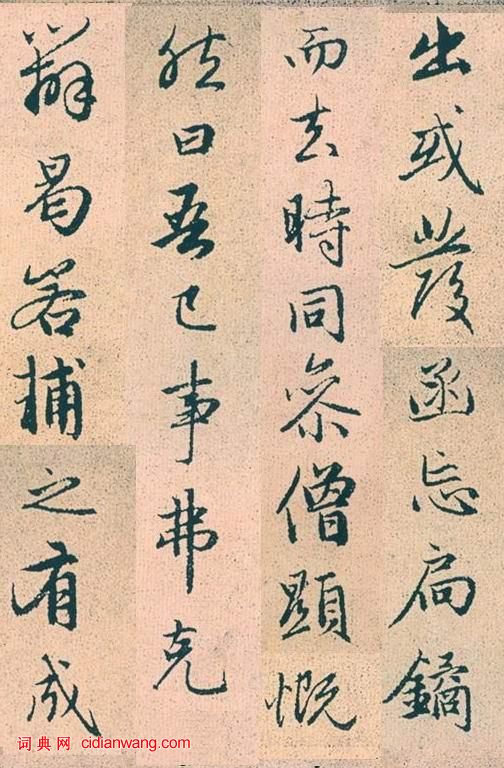 出或發函忘扃鐍
而去時同參僧顯慨
然曰吾已事弗克
辦曷若捕之有成
词典网 cidianwang.com